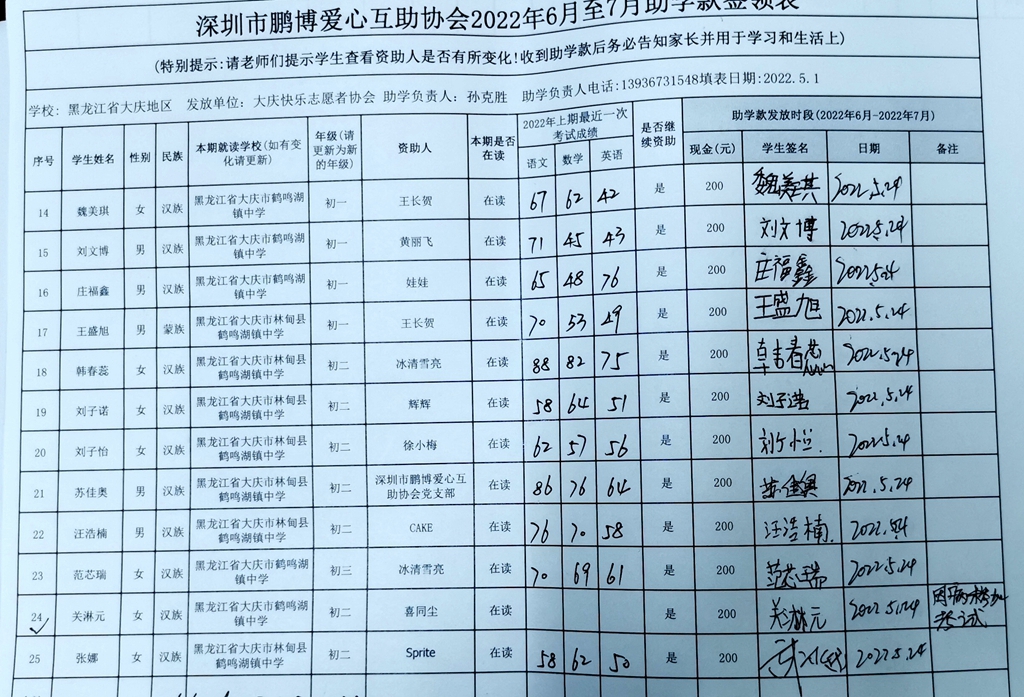 深圳市鹏博爱心互助协会2022年6月至7月助学款签领表
(特别提示:请老师们提示学生查看资助人是否有所变化!收到助学款后务必告知家长并用于学习和生活上)
学校: 黑龙江省大庆地区 发放单位: 大庆快乐志愿者协会 助学负责人: 孙克胜 助学负责人电话:13936731548填表日期:2022.5.1
序号 学生姓名 性别 民族 本期就读学校(如有变化请更新) 年级(请更新为新的年级) 资助人 本期是否在读 2022年上期最近一次考试成绩 是否继续资助 助学款发放时段(2022年6月-2022年7月)
语文 数学 英语 现金(元) 学生签名 日期 备注
14 魏美琪 女 汉族 黑龙江省大庆市鹤鸣湖镇中学 初一 王长贺 在读 67 62 42 是 200 魏美琪 2022.5.24
15 刘文博 男 汉族 黑龙江省大庆市鹤鸣湖镇中学 初一 黄丽飞 在读 71 45 43 是 200 刘文博 2022.5.24
16 庄福鑫 男 汉族 黑龙江省大庆市鹤鸣湖镇中学 初一 娃娃 在读 65 48 76 是 200 庄福鑫 2022.5.24
17 王盛旭 男 蒙族 黑龙江省大庆市林甸县鹤鸣湖镇中学 初一 王长贺 在读 70 53 49 是 200 王盛旭 2022.5.24
18 韩春蕊 女 汉族 黑龙江省大庆市林甸县鹤鸣湖镇中学 初二 冰清雪亮 在读 88 82 75 是 200 2022.5.24
19 刘子诺 女 汉族 黑龙江省大庆市林甸县鹤鸣湖镇中学 初二 辉辉 在读 58 64 51 是 200 刘子诺 2022.5.24
20 刘子怡 女 汉族 黑龙江省大庆市林甸县鹤鸣湖镇中学 初二 徐小梅 在读 62 57 56 是 200 刘子怡 2022.5.24
21 苏佳奥 男 汉族 黑龙江省大庆市林甸县鹤鸣湖镇中学 初二 深圳市鹏博爱心互助协会党支部 在读 86 76 64 是 200 苏佳奥 2022.5.24
22 汪浩楠 男 汉族 黑龙江省大庆市林甸县鹤鸣湖镇中学 初二 CAKE 在读 76 70 58 是 200 汪浩楠 2022.5.24
23 范芯瑞 女 汉族 黑龙江省大庆市林甸县鹤鸣湖镇中学 初三 冰清雪亮 在读 70 69 61 是 200 范芯瑞 2022.5.24
24 关淋元 女 汉族 黑龙江省大庆市林甸县鹤鸣湖镇中学 初二 喜同尘 在读 是 200 关淋元 2022.5.24 因病未参加考试
25 张娜 女 汉族 黑龙江省大庆市林甸县鹤鸣湖镇中学 初二 Sprite 在读 58 62 50 是 200 2022.5.24